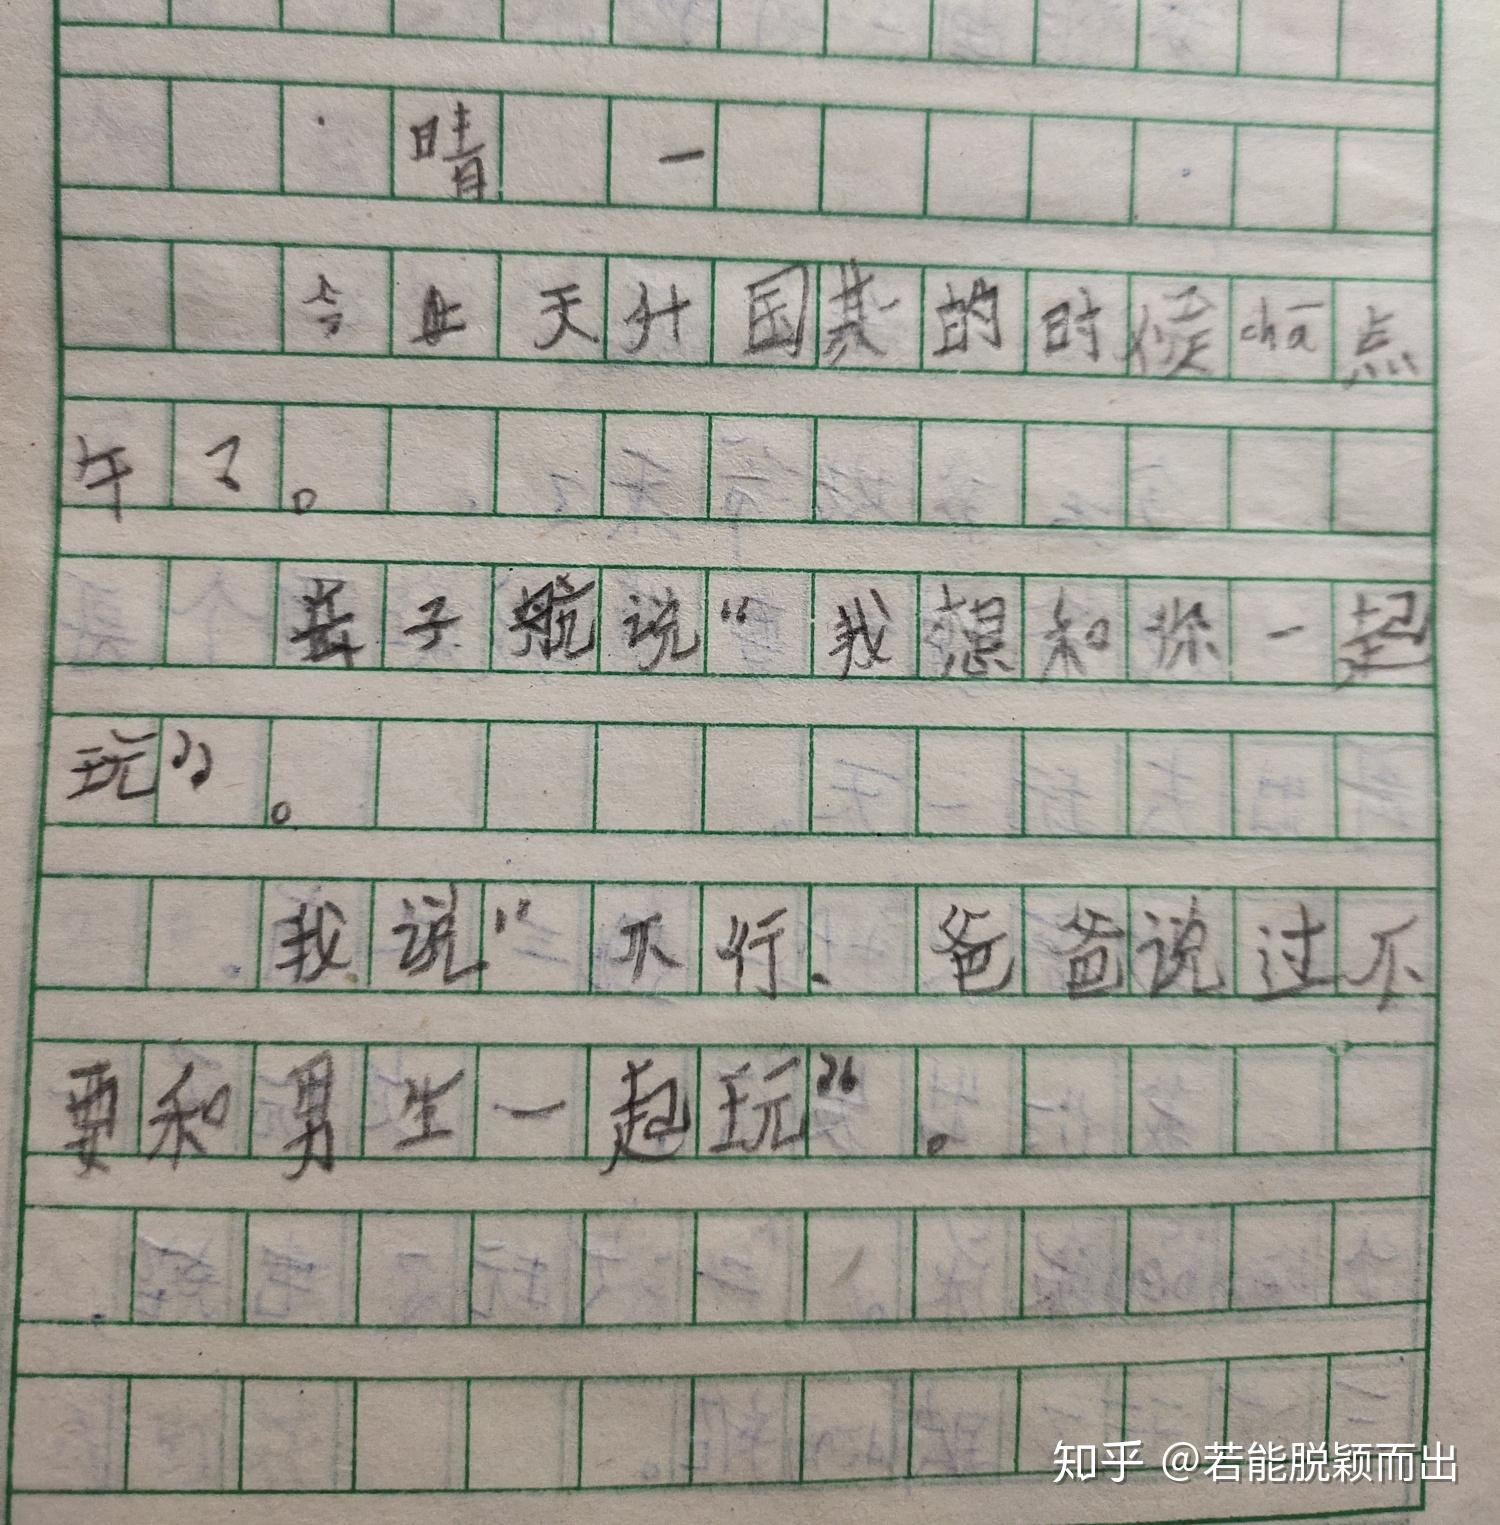 晴 一
今止天升国旗的时候chā点
午了。
岳子航说“我想和你一起
玩”。
我说“不行、爸爸说过不
要和男生一起玩”。
知乎 @若能脱颖而出